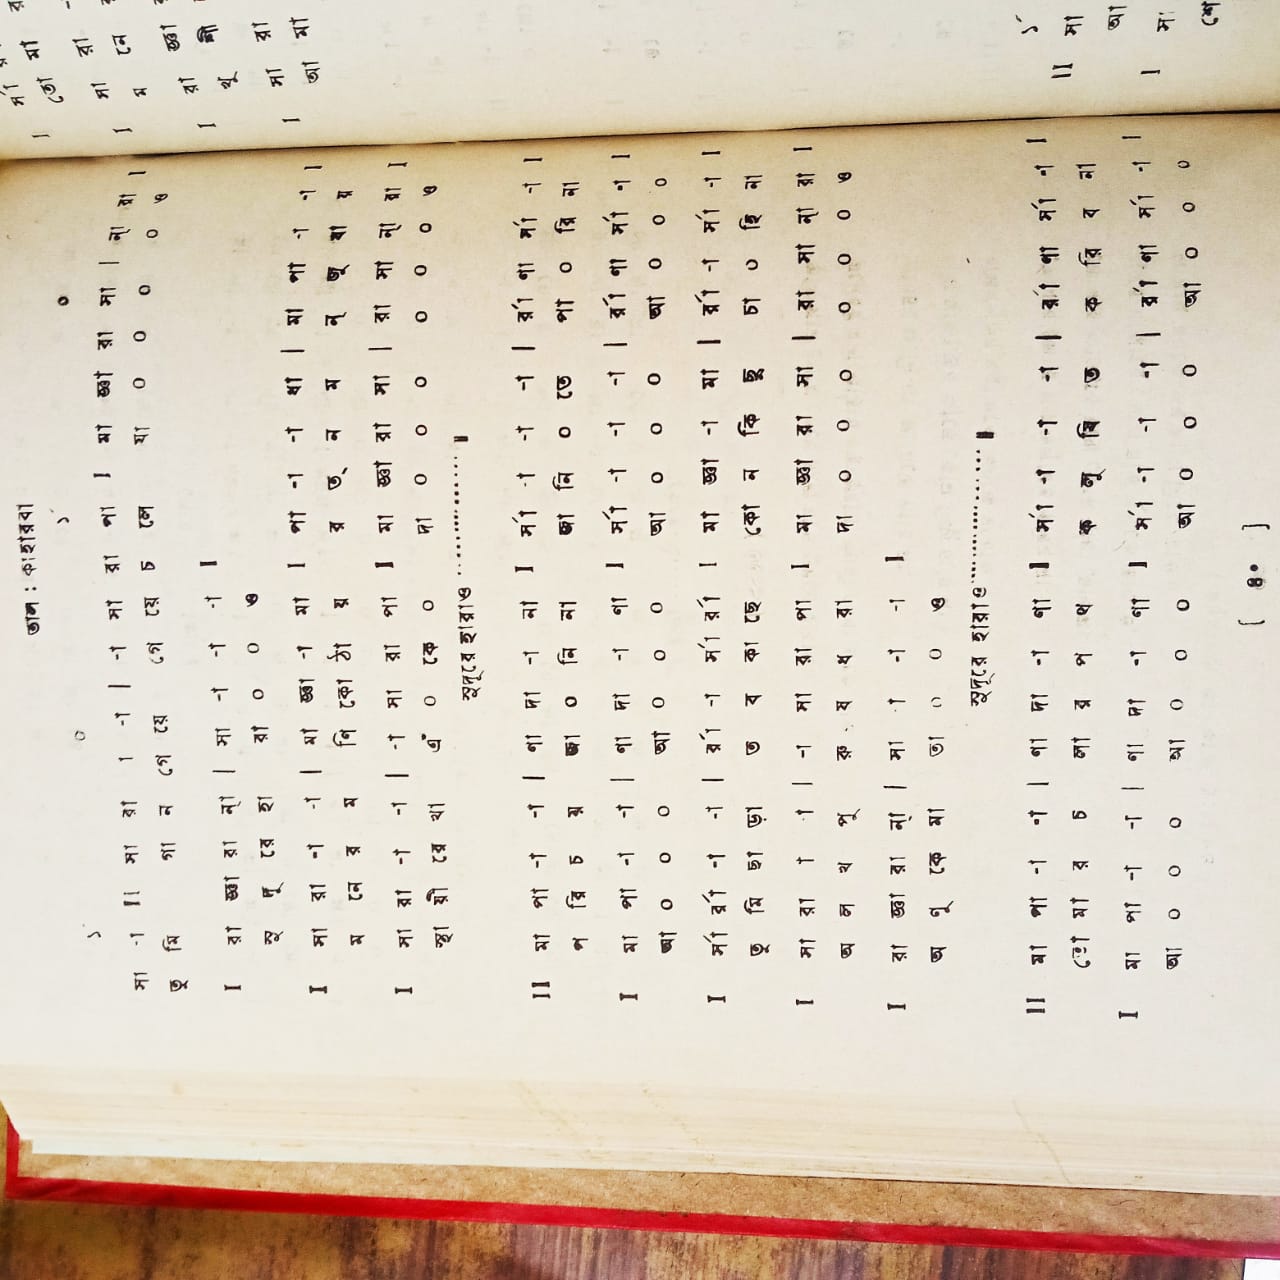 তাল : কাহারবা
১ ০ ১ ০
সা -া II সা রা া -া | -া সা রা পা I মা জ্ঞা রা সা | ন্‌া রা I
তু মি গা ন গে য়ে গে য়ে চ লে যা ০ ০ ০ ০ ও
I রা জ্ঞা রা ন্‌া | সা -া -া -া I
সু দূ রে হা রা ০ ০ ও
I সা রা -া -া | মা জ্ঞা -া মা I পা -া -া ধা | মা পা -া -া I
ম নে র ম ণি কো ঠা য় র ত্ ন ম ন্ জু ষা য়
I সা রা -া -া | -া সা রা পা I মা জ্ঞা রা সা | রা সা ন্‌া রা I
স্থা য়ী রে খা এঁ ০ কে ০ দা ০ ০ ০ ০ ০ ০ ও
সুদূরে হারাও ............... ॥
II মা পা -া -া | ণা দা -া না I র্সা -া -া -া | র্রা ণা র্সা -া I
প রি চ য় জা ০ নি না জা নি ০ তে পা ০ রি না
I মা পা -া -া | ণা দা -া ণা I র্সা -া -া -া | র্রা ণা র্সা -া I
আ ০ ০ ০ আ ০ ০ ০ আ ০ ০ ০ আ ০ ০ ০
I র্সা র্রা -া -া | র্রা -া র্সা র্রা I মা জ্ঞা -া মা | র্রা -া র্সা -া I
তু মি ছা ড়া ত ব কা ছে কো ন কি ছু চা ০ হি না
I সা রা া া | -া সা রা পা I মা জ্ঞা রা সা | রা সা ন্‌া রা I
অ ল খ পু রু ষ ধ রা দা ০ ০ ০ ০ ০ ০ ও
I রা জ্ঞা রা ন্‌া | সা া -া -া I
অ ণু কে মা তা ০ ০ ও
সুদূরে হারাও ............... ॥
II মা পা -া -া | ণা দা -া ণা I র্সা -া -া -া | র্রা ণা র্সা -া I
তো মা র চ লা র প থ ক লু ষি ত ক রি ব না
I মা পা -া -া | ণা দা -া ণা I র্সা -া -া -া | র্রা ণা র্সা -া I
আ ০ ০ ০ আ ০ ০ ০ আ ০ ০ ০ আ ০ ০ ০
[ ৪০ ]